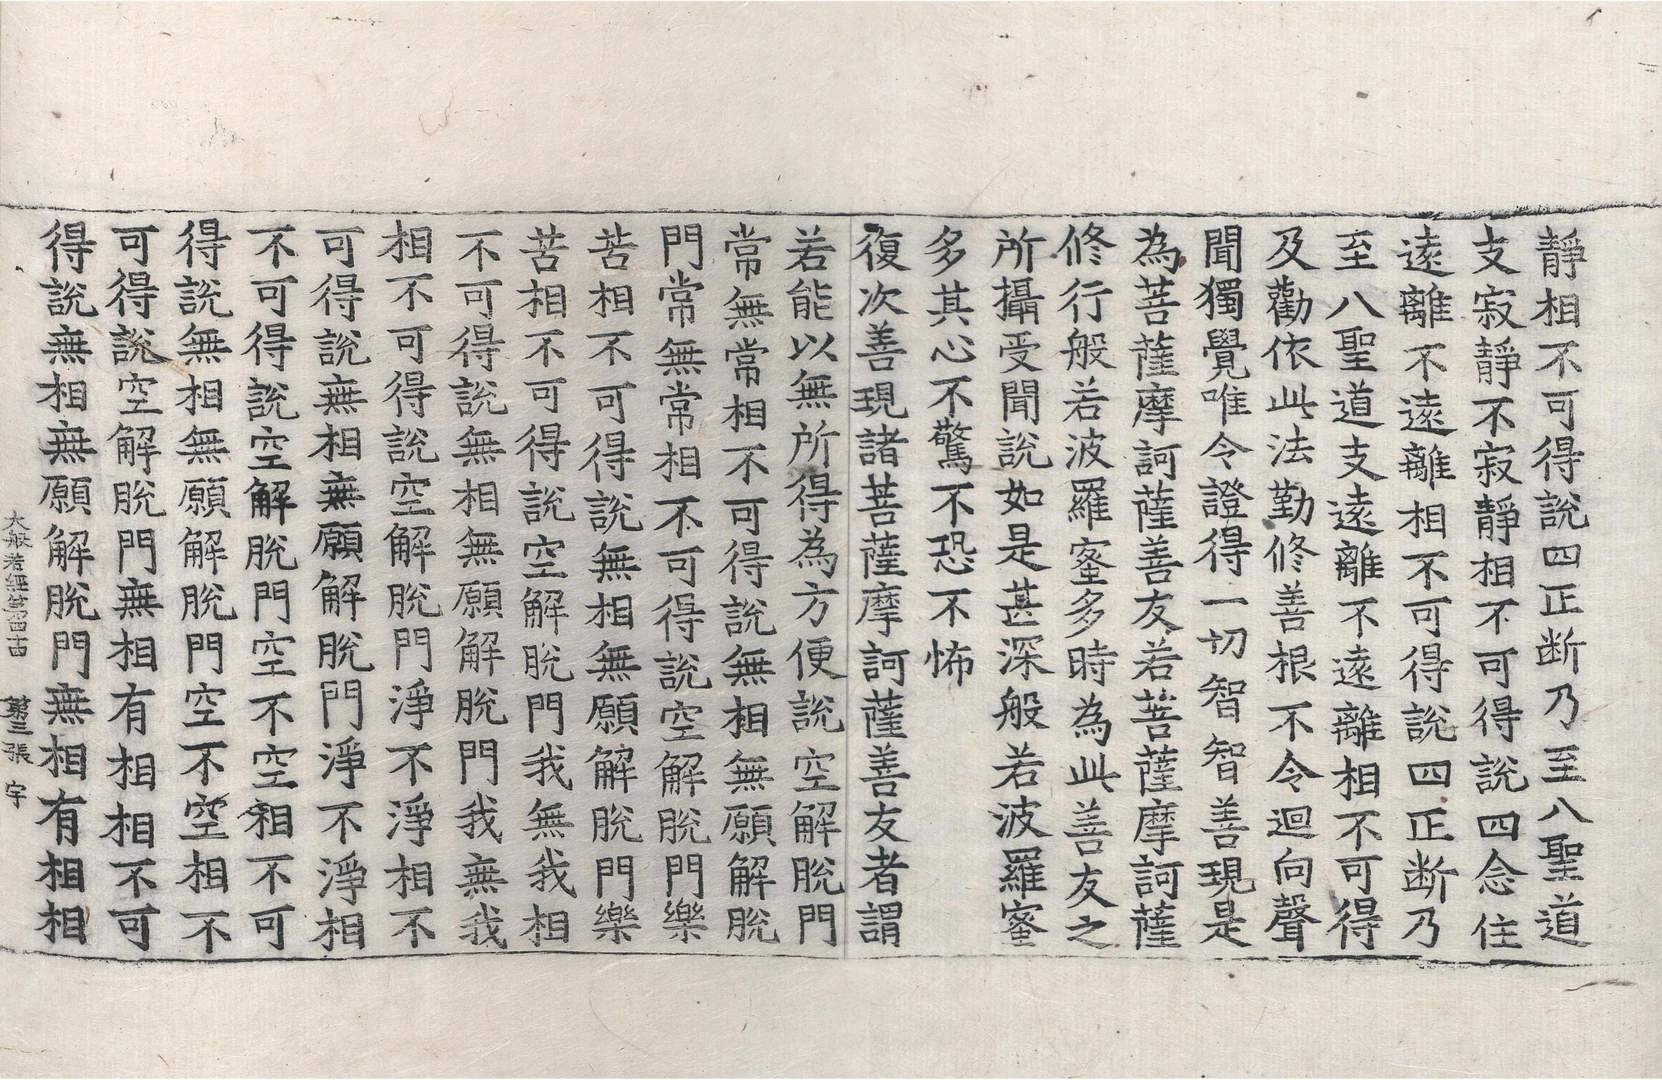 靜相不可得說四正斷乃至八聖道
支寂靜不寂靜相不可得說四念住
遠離不遠離相不可得說四正斷乃
至八聖道支遠離不遠離相不可得
及勸依此法勤修善根不令迴向聲
聞獨覺唯令證得一切智智善現是
為菩薩摩訶薩善友若菩薩摩訶薩
修行般若波羅蜜多時為此善友之
所攝受聞說如是甚深般若波羅蜜
多其心不驚不恐不怖
復次善現諸菩薩摩訶薩善友者謂
若能以無所得為方便說空解脫門
常無常相不可得說無相無願解脫
門常無常相不可得說空解脫門樂
苦相不可得說無相無願解脫門樂
苦相不可得說空解脫門我無我相
不可得說無相無願解脫門我無我
相不可得說空解脫門淨不淨相不
可得說無相無願解脫門淨不淨相
不可得說空解脫門空不空相不可
得說無相無願解脫門空不空相不
可得說空解脫門無相有相相不可
得說無相無願解脫門無相有相相
大般若經第四十 第三張 宇